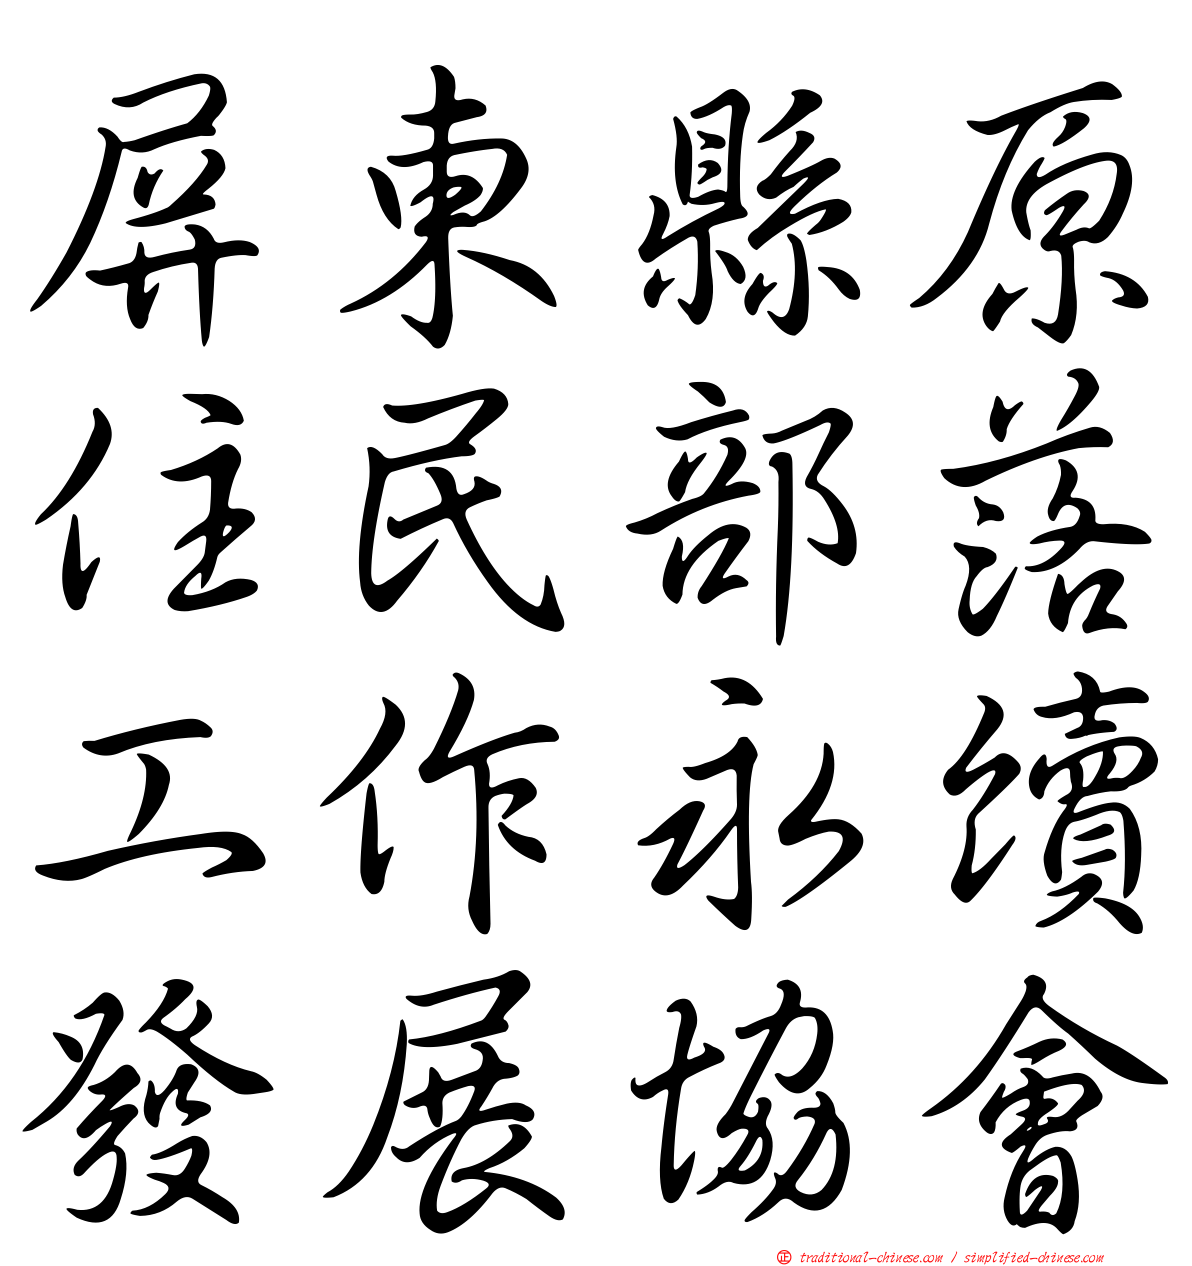 屏東縣原
住民部落
工作永續
發展協會
㊣ traditional-chinese.com / simplified-chinese.com